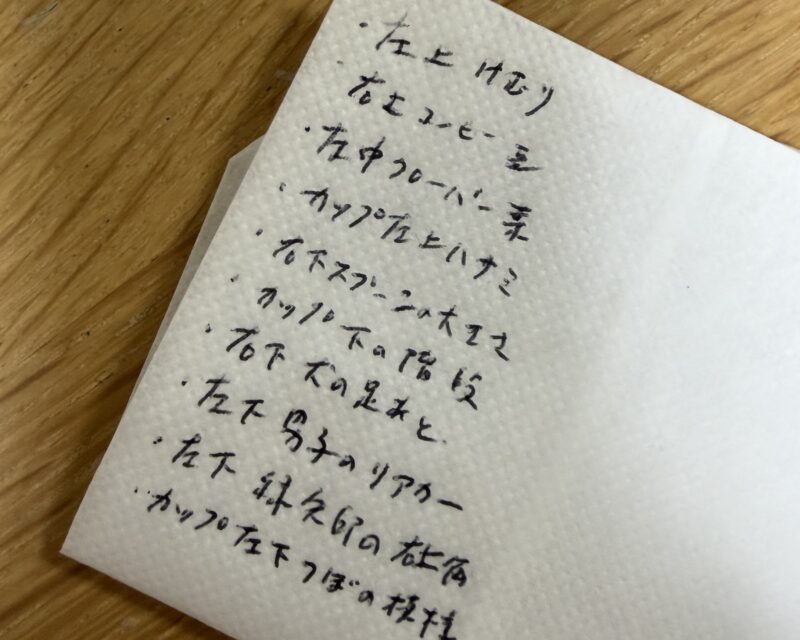 ・左上 けむり
右上 コーヒー豆
・左中 クローバー葉
・カップ左上ハナミミ
・右下スプーンの大きさ
・カップ下の階段
・右下 犬の足あと
・左下 男子のリアカー
・左下 緑矢印の右上角
・カップ左下つぼの模様